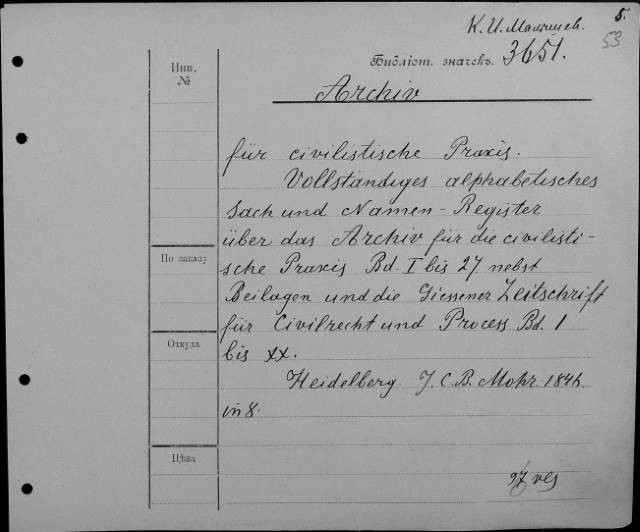 5.
К. И. Малышев.
53
Инв.
№
Библіот. значекъ. 3651.
Archiv
für civilistische Praxis.
Vollständiges alphabetisches
Sach und Namen-Register
über das Archiv für die civilisti-
sche Praxis Bd. I bis 27 nebst
По заказу
Beilagen und die Giessener Zeitschrift
für Civilrecht und Process Bd. 1
Откуда
bis XX.
Heidelberg. J. C. B. Mohr. 184
in 8.
Цѣна